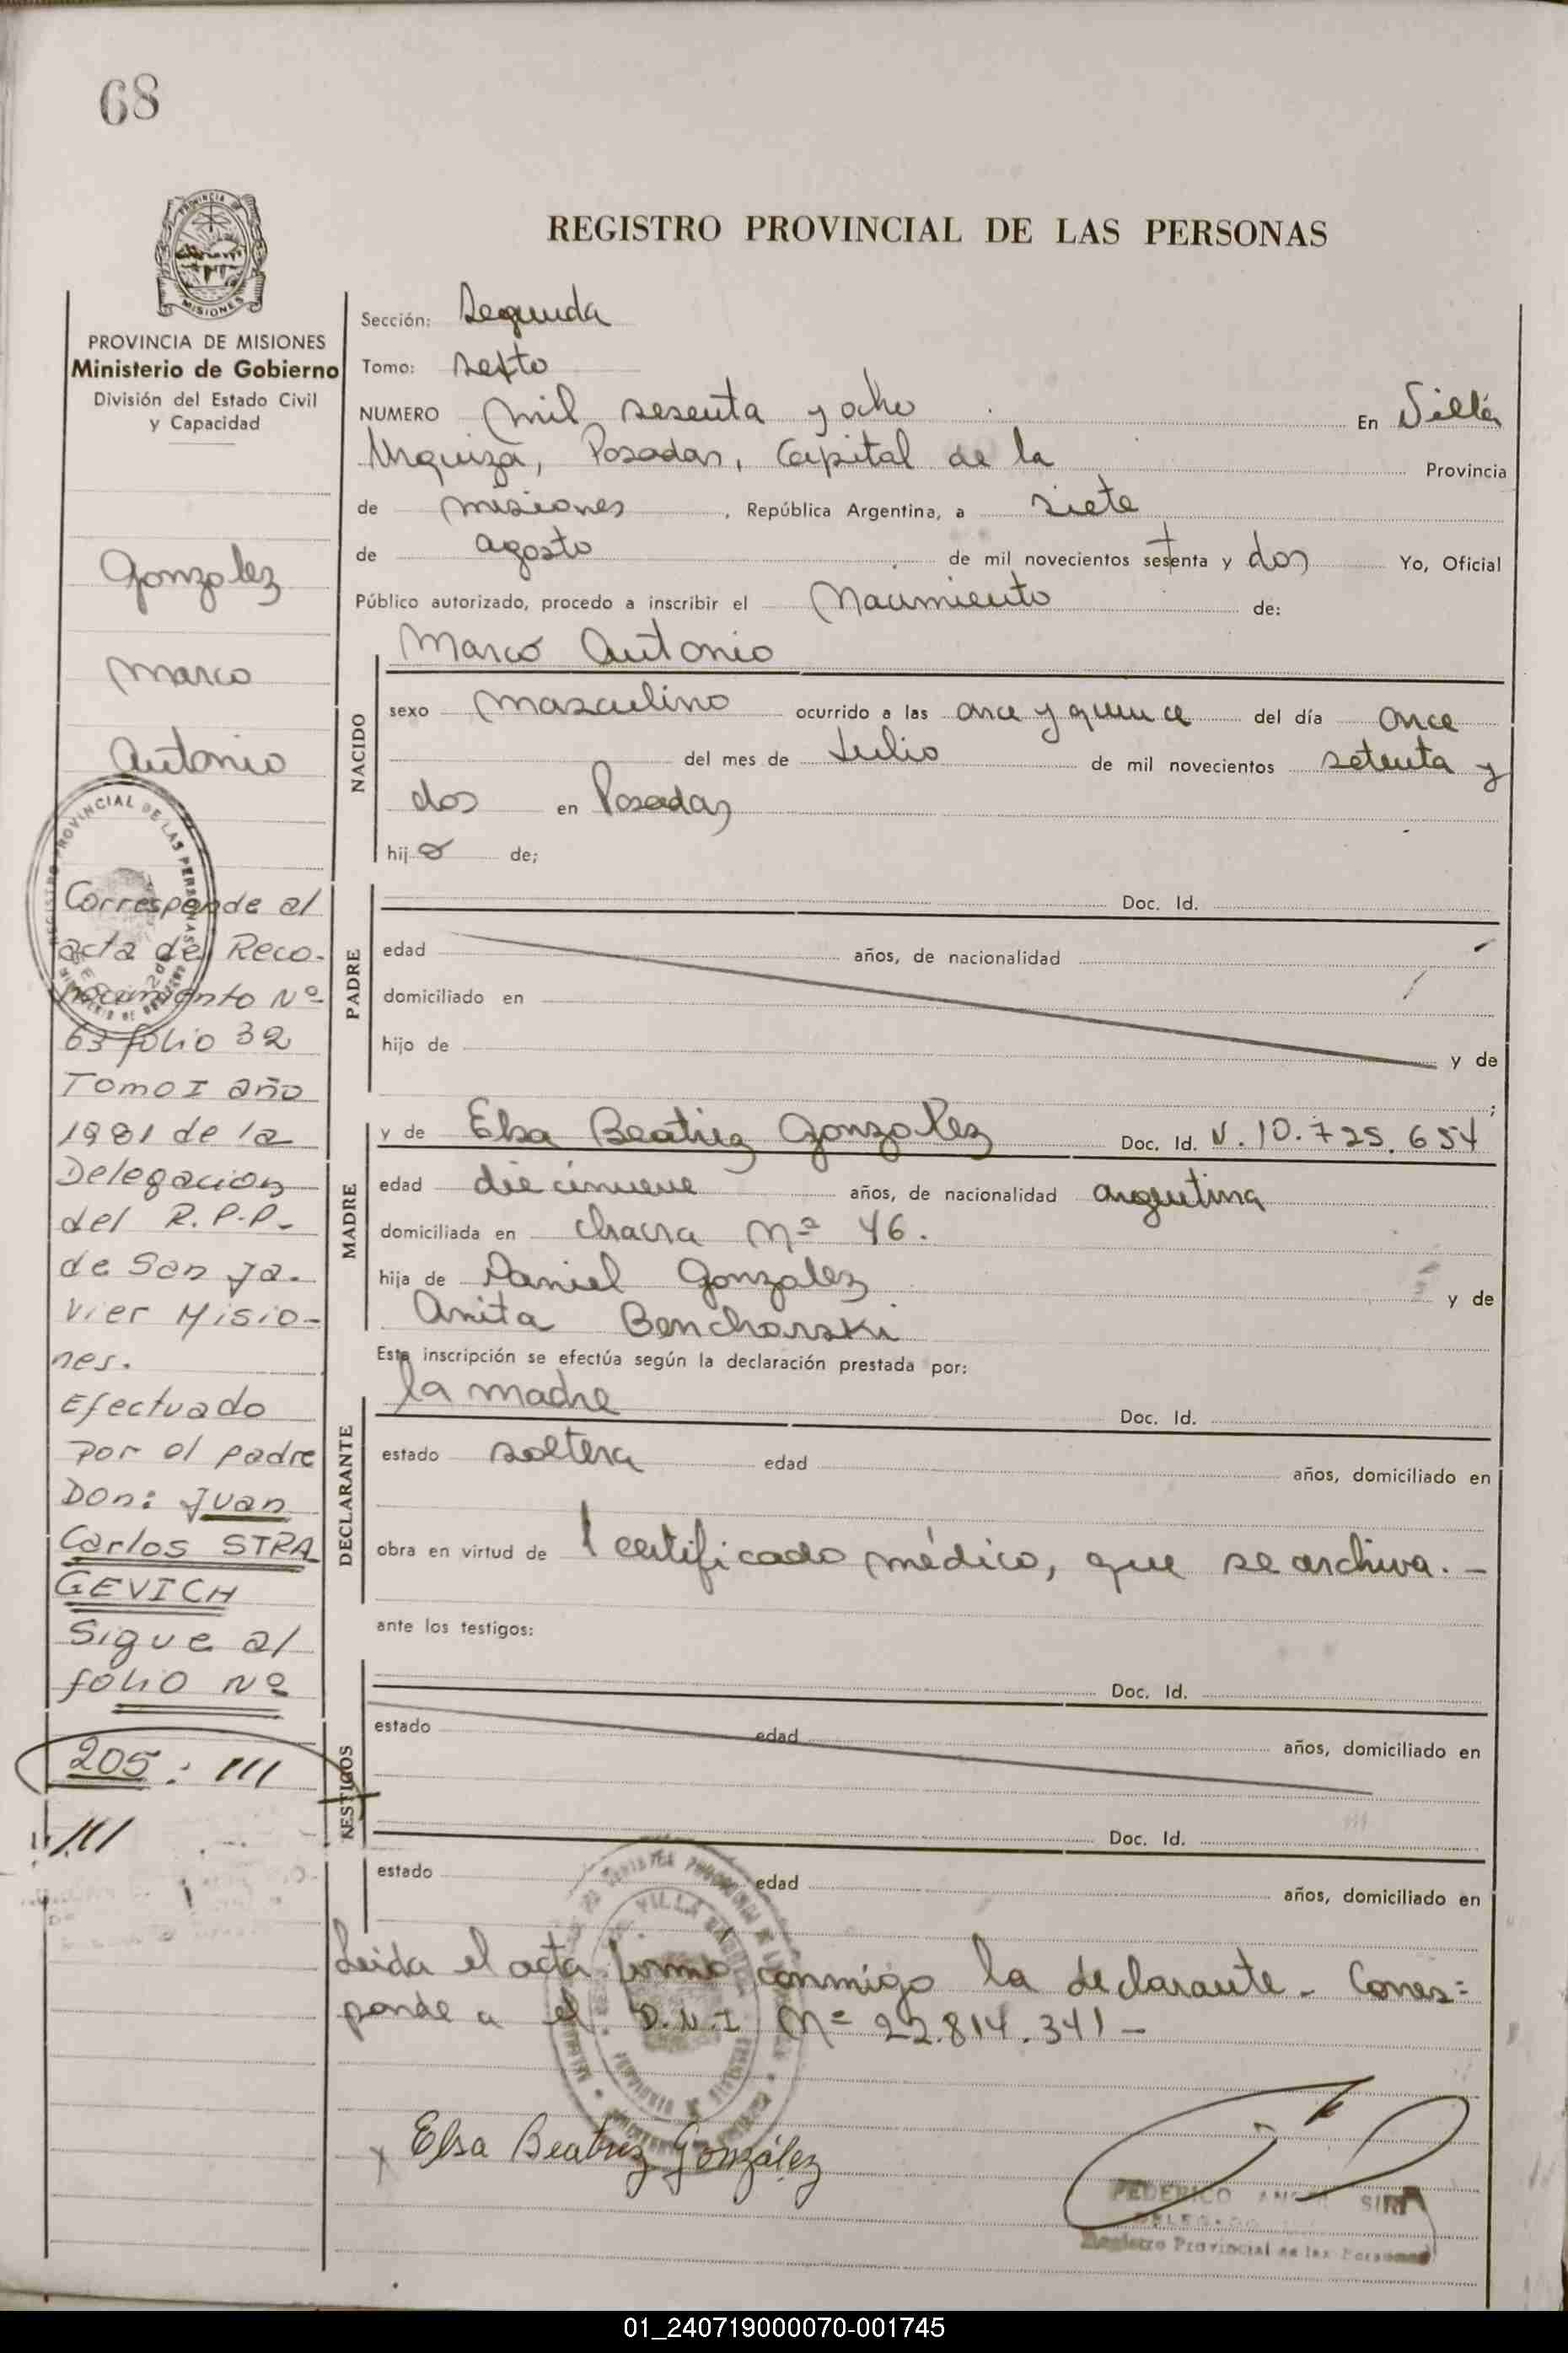 68
PROVINCIA
MISIONES
PROVINCIA DE MISIONES
Ministerio de Gobierno
División del Estado Civil
y Capacidad
Gonzalez
Marco
Antonio
REGISTRO PROVINCIAL DE LAS PERSONAS
Corresponde al
acta de Reco-
nocimiento Nº
63 folio 32
Tomo I año
1981 de la
Delegacion
del R.P.P.-
de San Ja-
vier Misio-
nes.
Efectuado
por el padre
Don: Juan
Carlos STRA
GEVICH
Sigue al
folio Nº
205 : ///
///
REGISTRO PROVINCIAL DE LAS PERSONAS
Sección: Segunda
Tomo: sexto
NUMERO mil sesenta y ocho En Villa
Urquiza, Posadas, Capital de la Provincia
de misiones, República Argentina, a siete
de agosto de mil novecientos setenta y dos Yo, Oficial
Público autorizado, procedo a inscribir el Nacimiento de:
Marco Antonio
NACIDO
sexo masculino ocurrido a las once y quince del día once
del mes de Julio de mil novecientos setenta y
dos en Posadas
hijo de;
PADRE
Doc. Id.
edad años, de nacionalidad
domiciliado en
hijo de y de
;
MADRE
y de Elsa Beatriz Gonzalez Doc. Id. N. 10.725.654
edad diecinueve años, de nacionalidad argentina
domiciliada en chacra Nº 46.
hija de Daniel Gonzalez y de
Anita Bencharski
Esta inscripción se efectúa según la declaración prestada por:
DECLARANTE
la madre Doc. Id.
estado soltera edad años, domiciliado en
obra en virtud de 1 certificado médico, que se archiva.-
ante los testigos:
TESTIGOS
Doc. Id.
estado edad años, domiciliado en
Doc. Id.
estado edad años, domiciliado en
Leida el acta firmó conmigo la declarante - Corres=
ponde a el D.N.I Nº 22.814.341-
x Elsa Beatriz González
FEDERICO
DELEGADO
Registro Provincial de las Personas
01_240719000070-001745